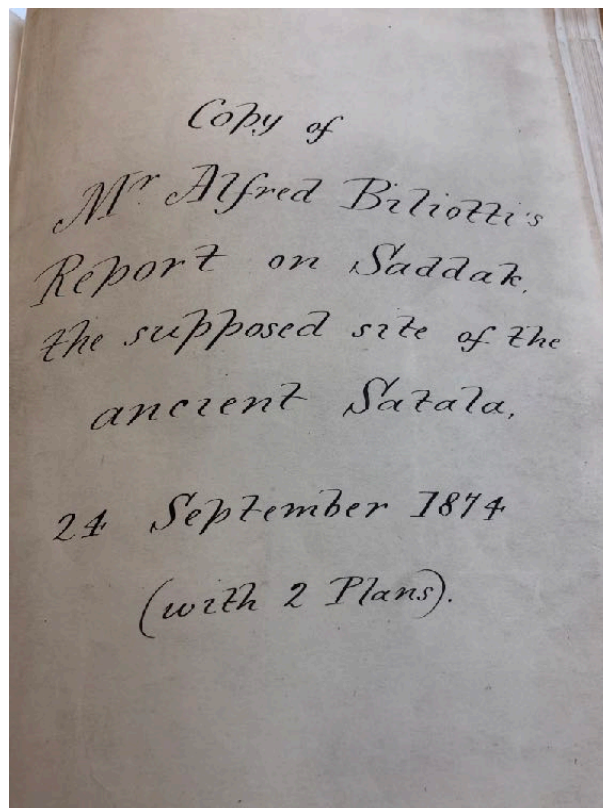 Copy of
Mr Alfred Biliotti's
Report on Saddak,
the supposed site of the
ancient Satala,
24 September 1874
(with 2 Plans).